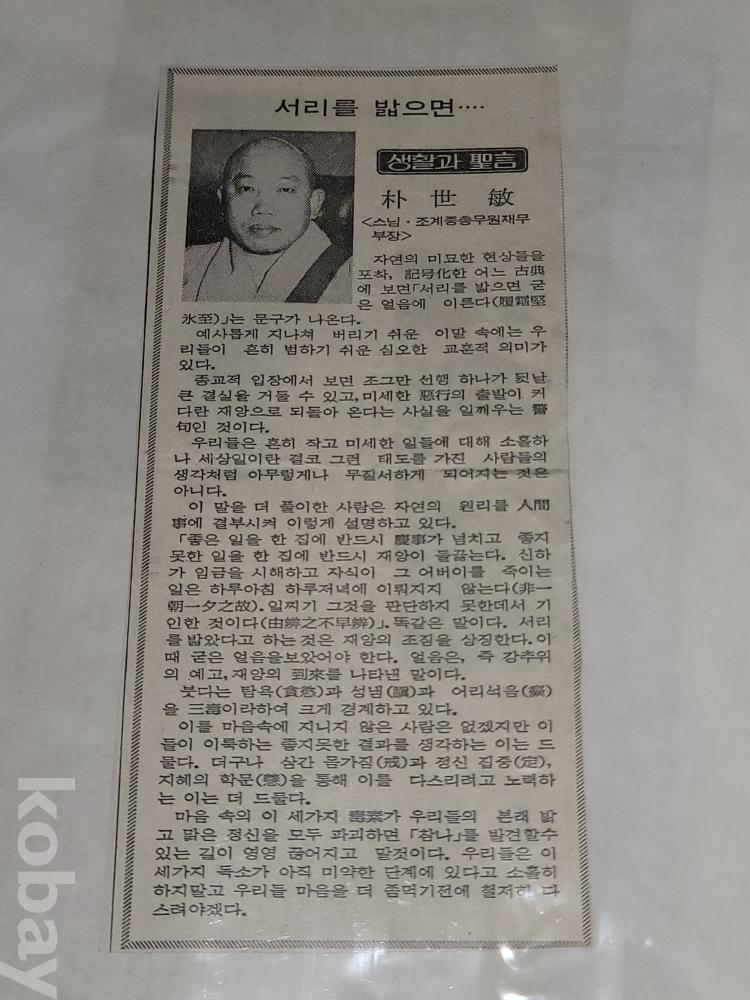 서리를 밟으면‥‥
생활과 聖言
朴世敏
<스님·조계종총무원재무
부장>
자연의 미묘한 현상들을
포착, 記号化한 어느 古典
에 보면「서리를 밟으면 굳
은 얼음에 이른다(履霜堅
氷至)」는 문구가 나온다.
예사롭게 지나쳐 버리기 쉬운 이말 속에는 우
리들이 흔히 범하기 쉬운 심오한 교훈적 의미가
있다.
종교적 입장에서 보면 조그만 선행 하나가 뒷날
큰 결실을 거둘 수 있고, 미세한 惡行의 출발이 커
다란 재앙으로 되돌아 온다는 사실을 일깨우는 警
句인 것이다.
우리들은 흔히 작고 미세한 일들에 대해 소홀하
나 세상일이란 결코 그런 태도를 가진 사람들의
생각처럼 아무렇게나 무질서하게 되어지는 것은
아니다.
이 말을 더 풀이한 사람은 자연의 원리를 人間
事에 결부시켜 이렇게 설명하고 있다.
「좋은 일을 한 집에 반드시 慶事가 넘치고 좋지
못한 일을 한 집에 반드시 재앙이 들끓는다. 신하
가 임금을 시해하고 자식이 그 어버이를 죽이는
일은 하루아침 하루저녁에 이뤄지지 않는다(非一
朝一夕之故). 일찌기 그것을 판단하지 못한데서 기
인한 것이다(由辨之不早辨)」. 똑같은 말이다. 서리
를 밟았다고 하는것은 재앙의 조짐을 상징한다. 이
때 굳은 얼음을보았어야 한다. 얼음은, 즉 강추위
의 예고, 재앙의 到來를 나타낸 말이다.
붓다는 탐욕(貪慾)과 성냄(瞋)과 어리석음(癡)
을 三毒이라하여 크게 경계하고 있다.
이를 마음속에 지니지 않은 사람은 없겠지만 이
들이 이룩하는 좋지못한 결과를 생각하는 이는 드
물다. 더구나 삼간 몸가짐(戒)과 정신 집중(定),
지혜의 학문(慧)을 통해 이를 다스리려고 노력하
는 이는 더 드물다.
마음 속의 이 세가지 毒素가 우리들의 본래 밝
고 맑은 정신을 모두 파괴하면「참나」를 발견할수
있는 길이 영영 끊어지고 말것이다. 우리들은 이
세가지 독소가 아직 미약한 단계에 있다고 소홀히
하지말고 우리들 마음을 더 좀먹기전에 철저히 다
스려야겠다.
kobay